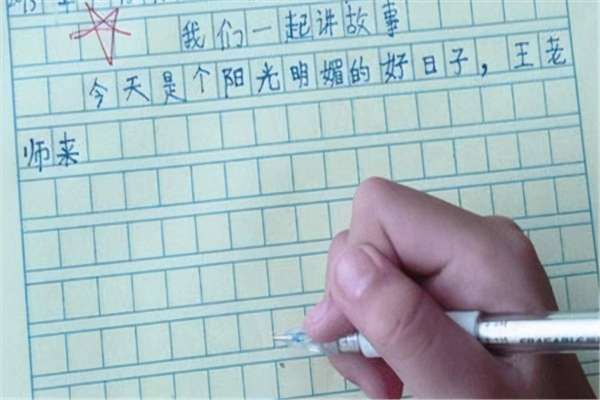 我们一起讲故事
今天是个阳光明媚的好日子，王老
师来